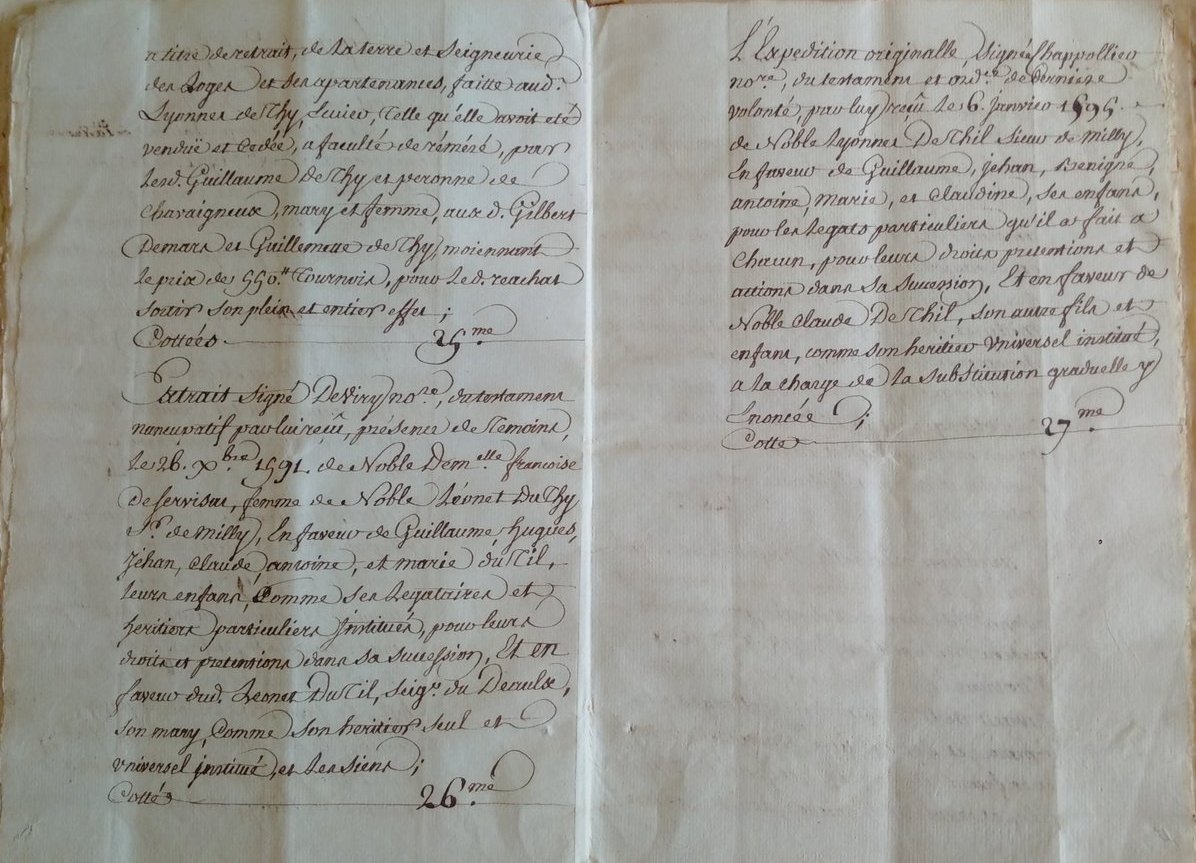 a titre de retrait, de la terre et Seigneurie
des Loges et Ses apartenances, faitte aud.
Lyonnet de Thy, Ecuier, telle qu'elle avoit eté
venduë et Cedée, a faculté de réméré, par
lesd. Guillaume De Thy et peronne de
Chavaigneux, mary et femme, aux d. Gilbert
Demars et Guillemette de Thy, moiennant
le prix de 550.tt Tournois, pour led. reachat
sortir son plein et entier effet ;
Cottées 25.me
Extrait signé DeViry no.re, du testament
nuncupatif par lui reçû, présence de Temoins,
le 26. Xbre 1591. de Noble Dem.elle francoise
de servisac, femme de Noble Léonet Du Thy
Sr. de Milly, En faveur de Guillaume, hugues,
Jéhan, Claude, antoine, et marie du Til,
leurs enfans, Comme ses Legataires et
heritiers particuliers Institués, pour leurs
droits et pretentions dans sa succession, Et en
faveur dud. Leonet Du Til, Seig.r du Deaulx,
son mary, Comme son heritier seul et
universel institué, et les siens ;
Cotté 26.me
L'Expedition originalle, signée Chappollieu
no.re, du testament et ord.ce de derniere
volonté, par luy reçû le 6. janvier 1595.
de Noble Lyonnet De Thil sieur de Milly,
En faveur de Guillaume, jehan, Benigne,
antoine, marie, et claudine, ses enfans,
pour les Legats particuliers qu'il a fait a
Chacun, pour leurs droits pretentions et
actions dans sa succession, Et en faveur de
Noble Claude De Thil, son autre fils et
enfant, comme son heritier Vniversel institué,
a la charge de la substitution graduelle y
Enoncée ;
Cotte 27.me